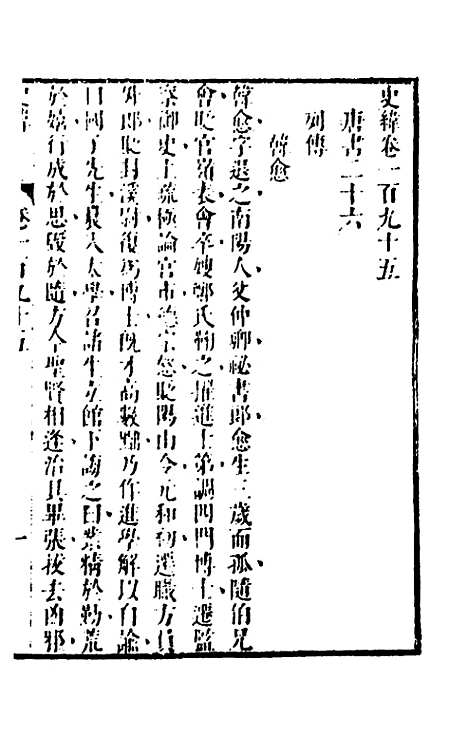 史緯卷一百九十五
唐書二十六
列傳
韓愈
韓愈字退之南陽人父仲卿祕書郎愈生三歲而孤隨伯兄
會貶官嶺表會卒嫂鄭氏鞠之擢進士第調四門博士遷監
察御史上疏極論宮市德宗怒貶陽山令元和初遷職方員
外郎貶封溪尉復為博士旣才高數黜乃作進學解以自諭
曰國子先生晨入太學召諸生立館下誨之曰業精於勤荒
於嬉行成於思毀於隨方今聖賢相逢治具畢張拔去凶邪
卷一百九十五
一